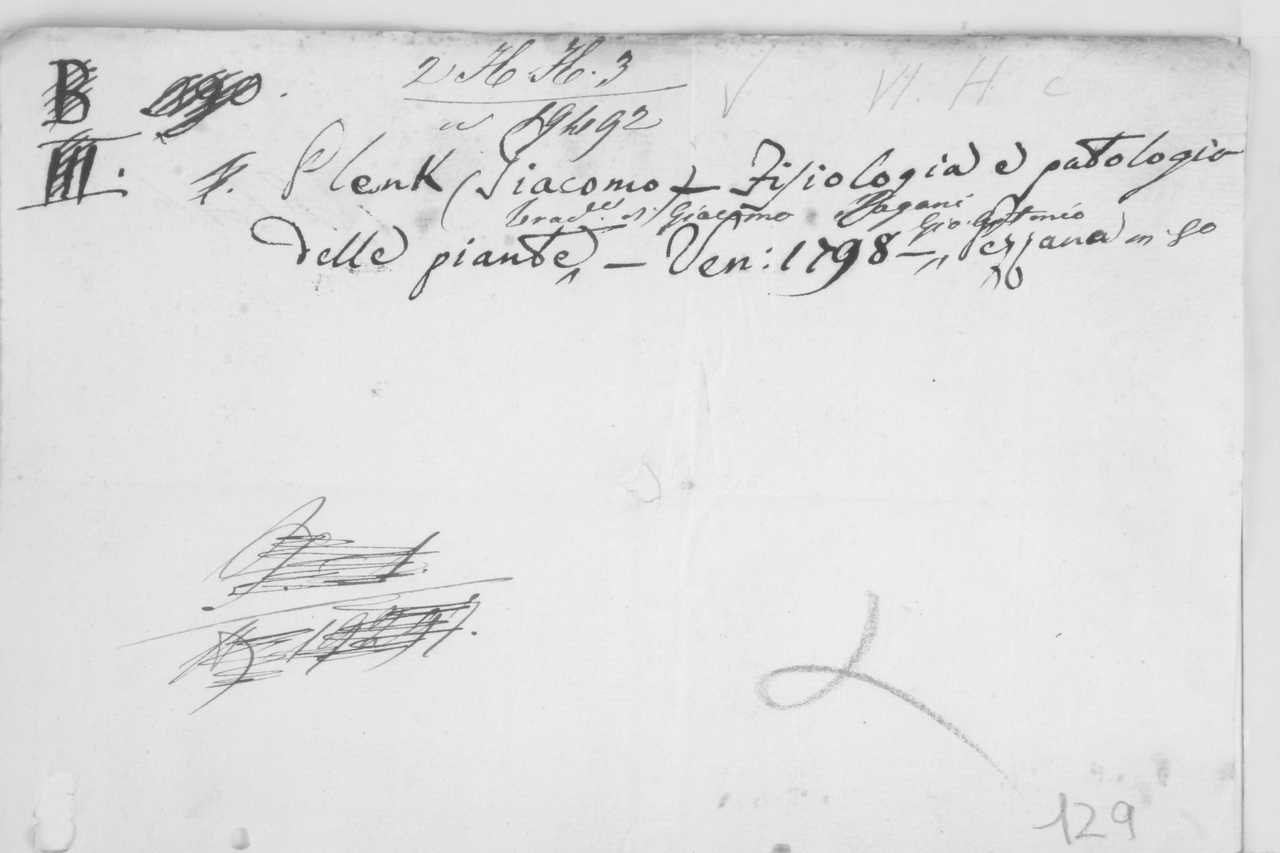 B
2 H. H. 3
19492
VI. H. C
III.
Plenk (Giacomo) — Fisiologia e patologia
trad.e di Giacomo Pagani
Gio. Antonio
delle piante — Ven: 1798 — Pezzana in 8o
129